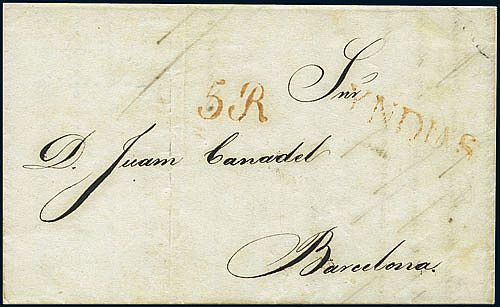 Snr
5R
YNDIAS
D. Juam Canadel
Barcelona.